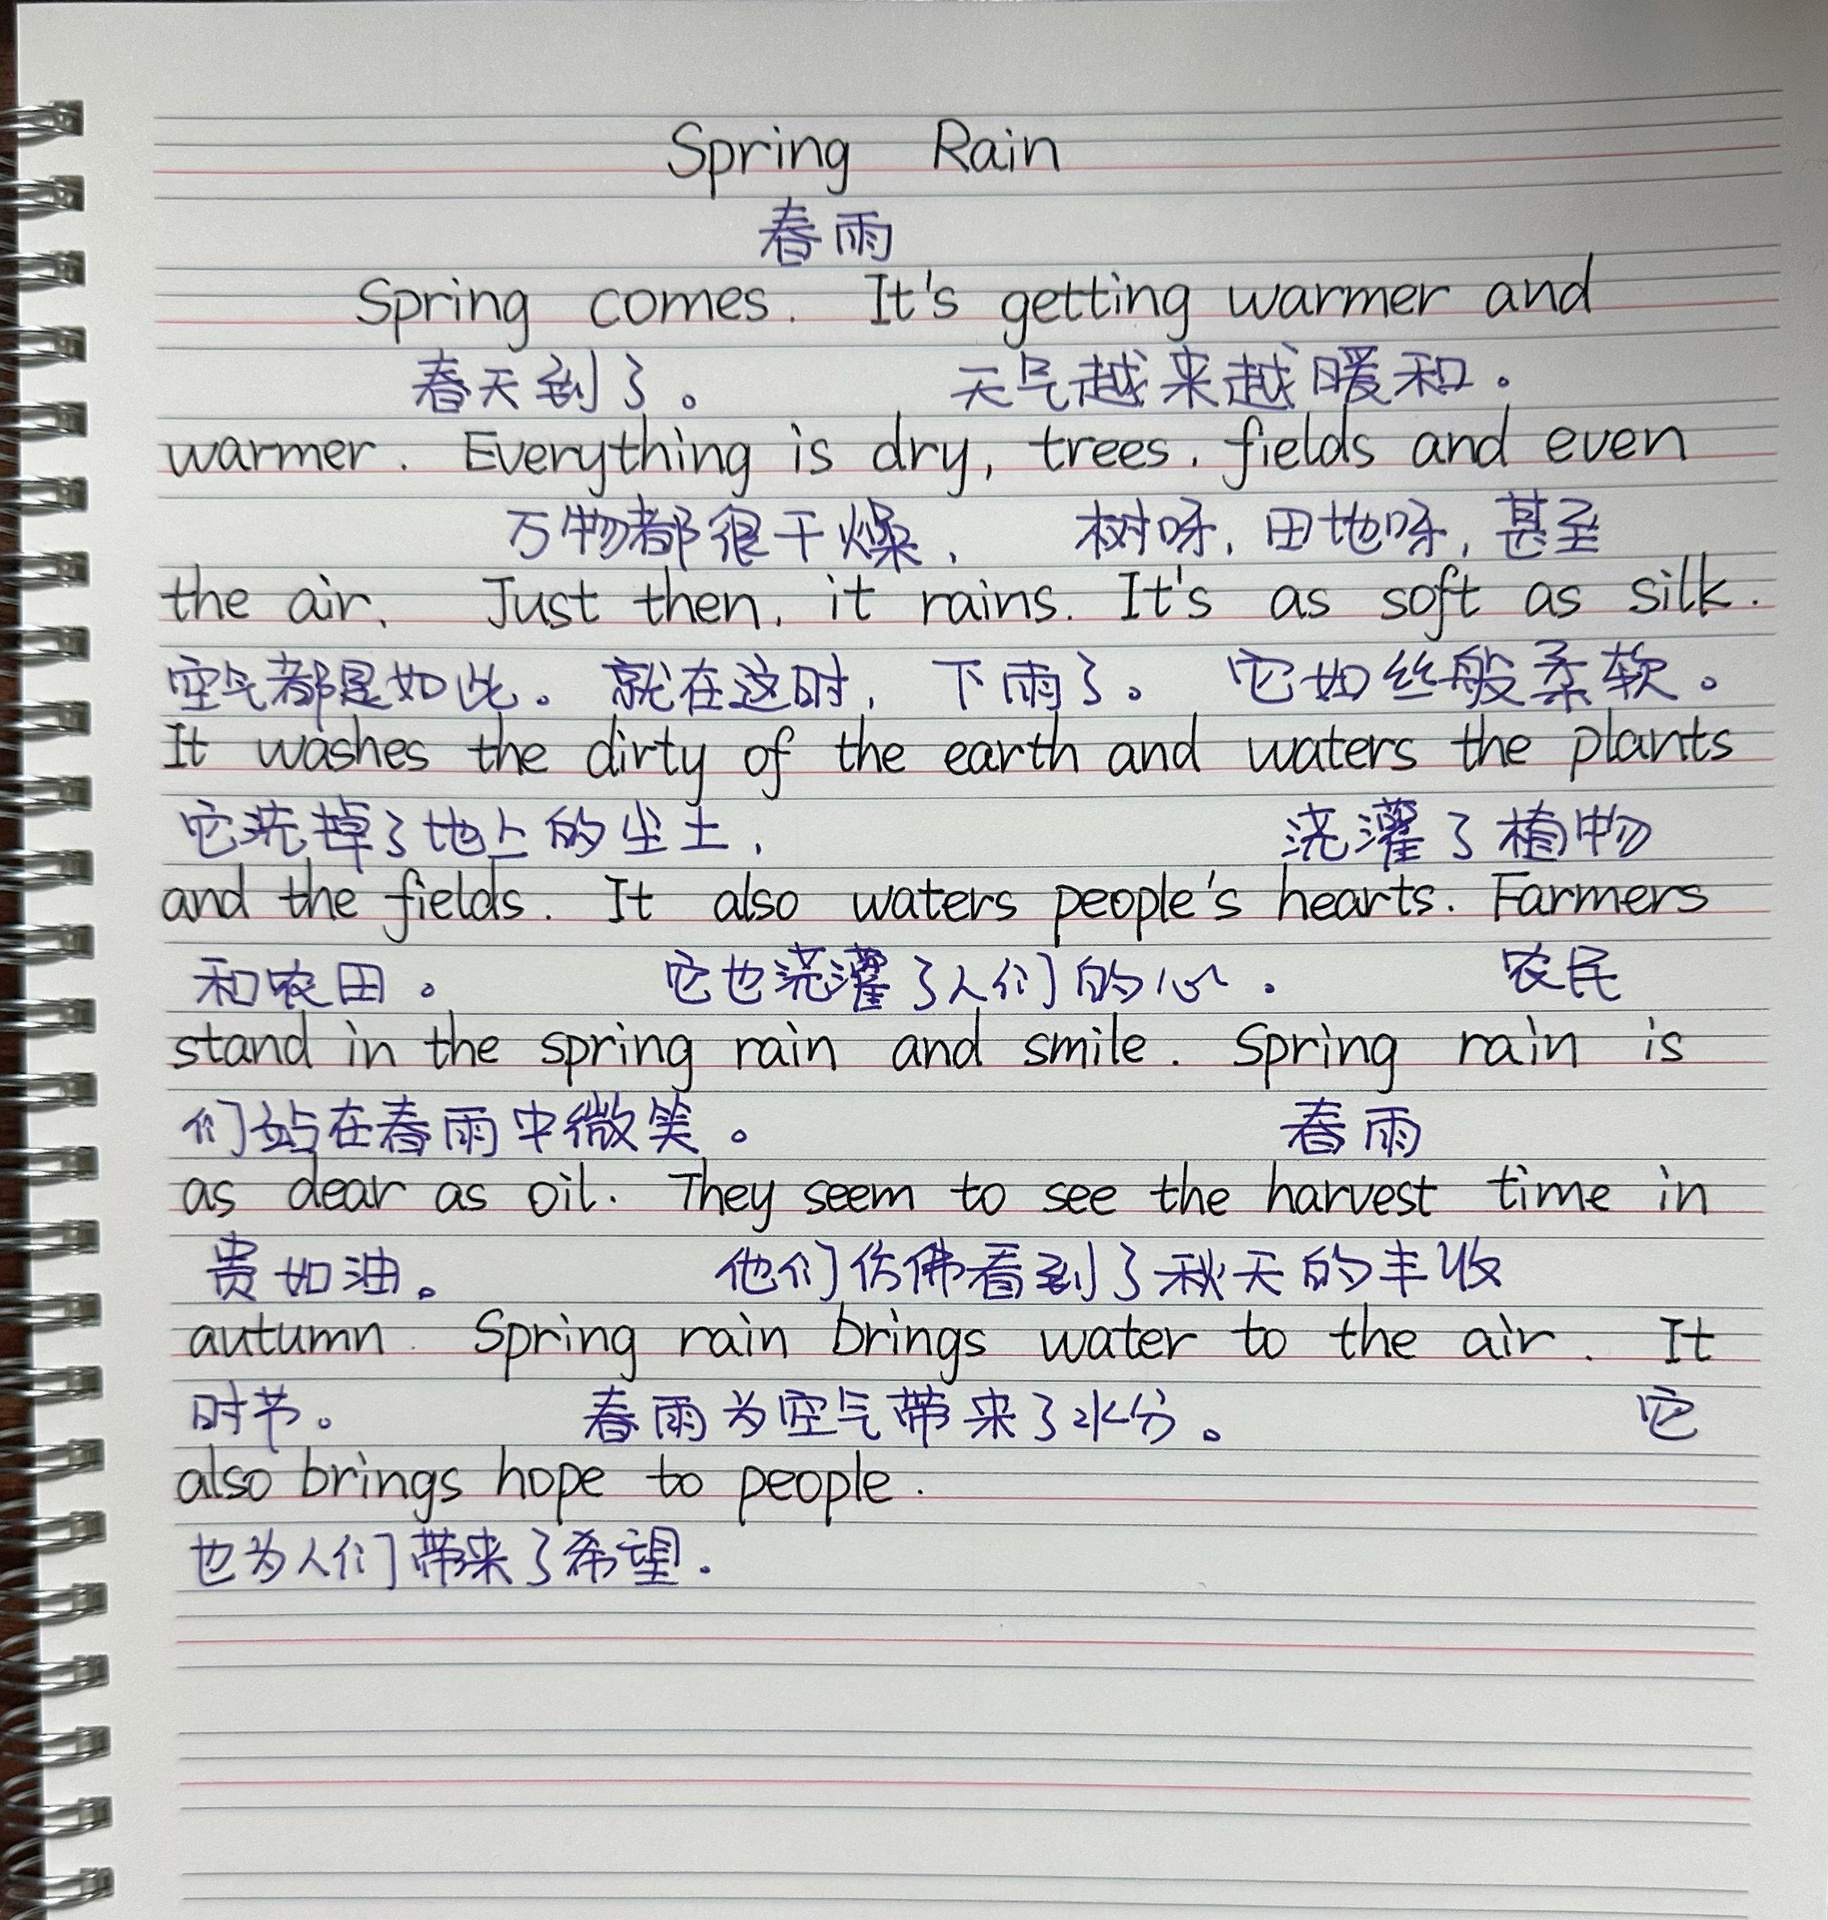 Spring Rain
春雨
Spring comes. It's getting warmer and
春天到了。 天气越来越暖和。
warmer. Everything is dry, trees, fields and even
万物都很干燥, 树呀, 田地呀, 甚至
the air. Just then, it rains. It's as soft as silk.
空气都是如此。 就在这时, 下雨了。 它如丝般柔软。
It washes the dirty of the earth and waters the plants
它洗掉了地上的尘土, 浇灌了植物
and the fields. It also waters people's hearts. Farmers
和农田。 它也浇灌了人们的心。 农民
stand in the spring rain and smile. Spring rain is
们站在春雨中微笑。 春雨
as dear as oil. They seem to see the harvest time in
贵如油。 他们仿佛看到了秋天的丰收
autumn. Spring rain brings water to the air. It
时节。 春雨为空气带来了水分。 它
also brings hope to people.
也为人们带来了希望.